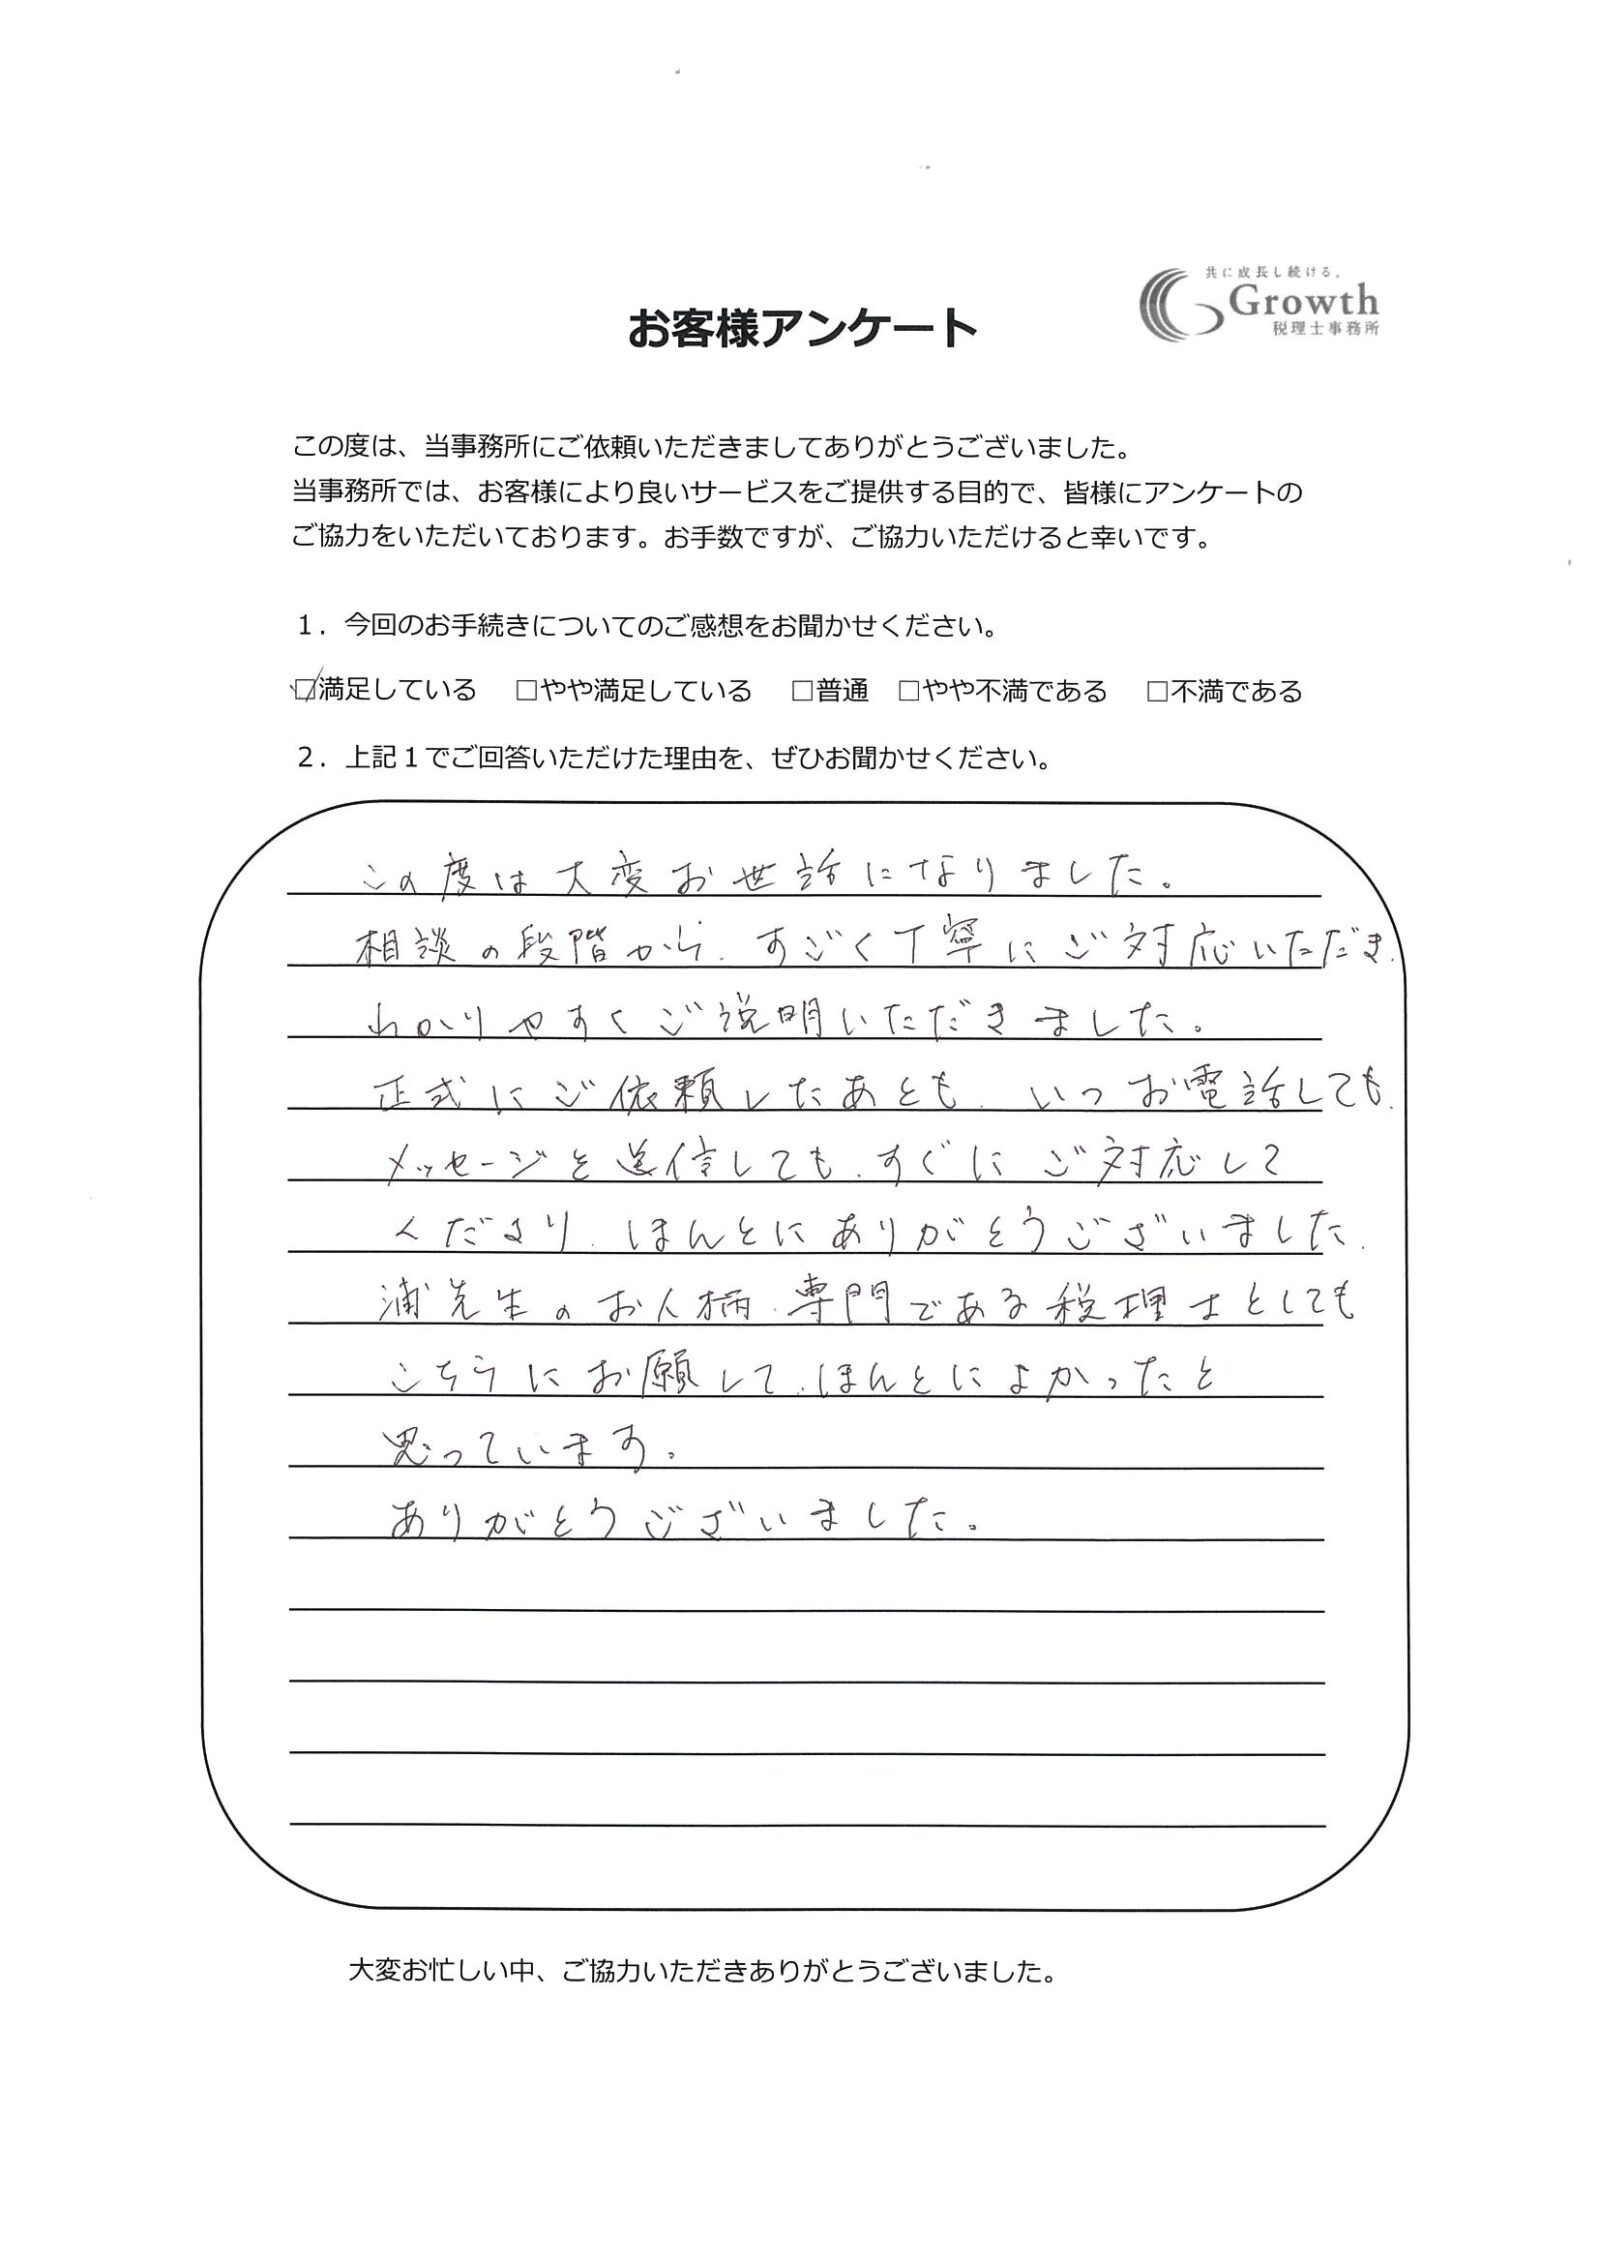 共に成長し続ける。
Growth
税理士事務所
お客様アンケート
この度は、当事務所にご依頼いただきましてありがとうございました。
当事務所では、お客様により良いサービスをご提供する目的で、皆様にアンケートの
ご協力をいただいております。お手数ですが、ご協力いただけると幸いです。
１．今回のお手続きについてのご感想をお聞かせください。
☑満足している　□やや満足している　□普通　□やや不満である　□不満である
２．上記１でご回答いただけた理由を、ぜひお聞かせください。
この度は大変お世話になりました。
相談の段階から、すごく丁寧にご対応いただき、
わかりやすくご説明いただきました。
正式にご依頼したあとも、いつお電話しても、
メッセージを送信しても、すぐにご対応して
くださり、ほんとにありがとうございました、
浦先生のお人柄、専門である税理士としても
こちらにお願して、ほんとによかったと
思っています。
ありがとうございました。
大変お忙しい中、ご協力いただきありがとうございました。